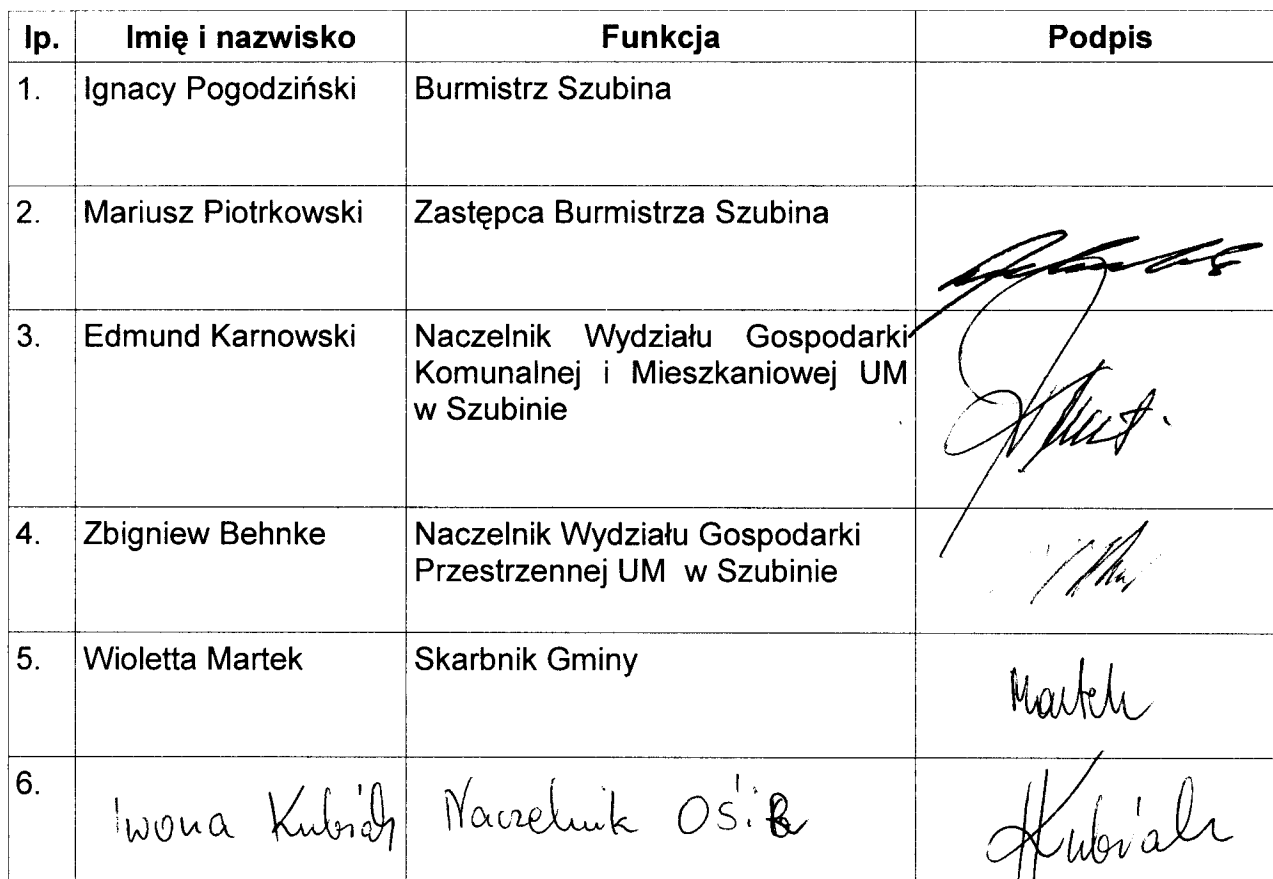 lp. Imię i nazwisko Funkcja Podpis
1. Ignacy Pogodziński Burmistrz Szubina
2. Mariusz Piotrkowski Zastępca Burmistrza Szubina
3. Edmund Karnowski Naczelnik Wydziału Gospodarki
Komunalnej i Mieszkaniowej UM
w Szubinie
4. Zbigniew Behnke Naczelnik Wydziału Gospodarki
Przestrzennej UM w Szubinie
5. Wioletta Martek Skarbnik Gminy Martek
6. Iwona Kubiak Naczelnik OŚiR Kubiak